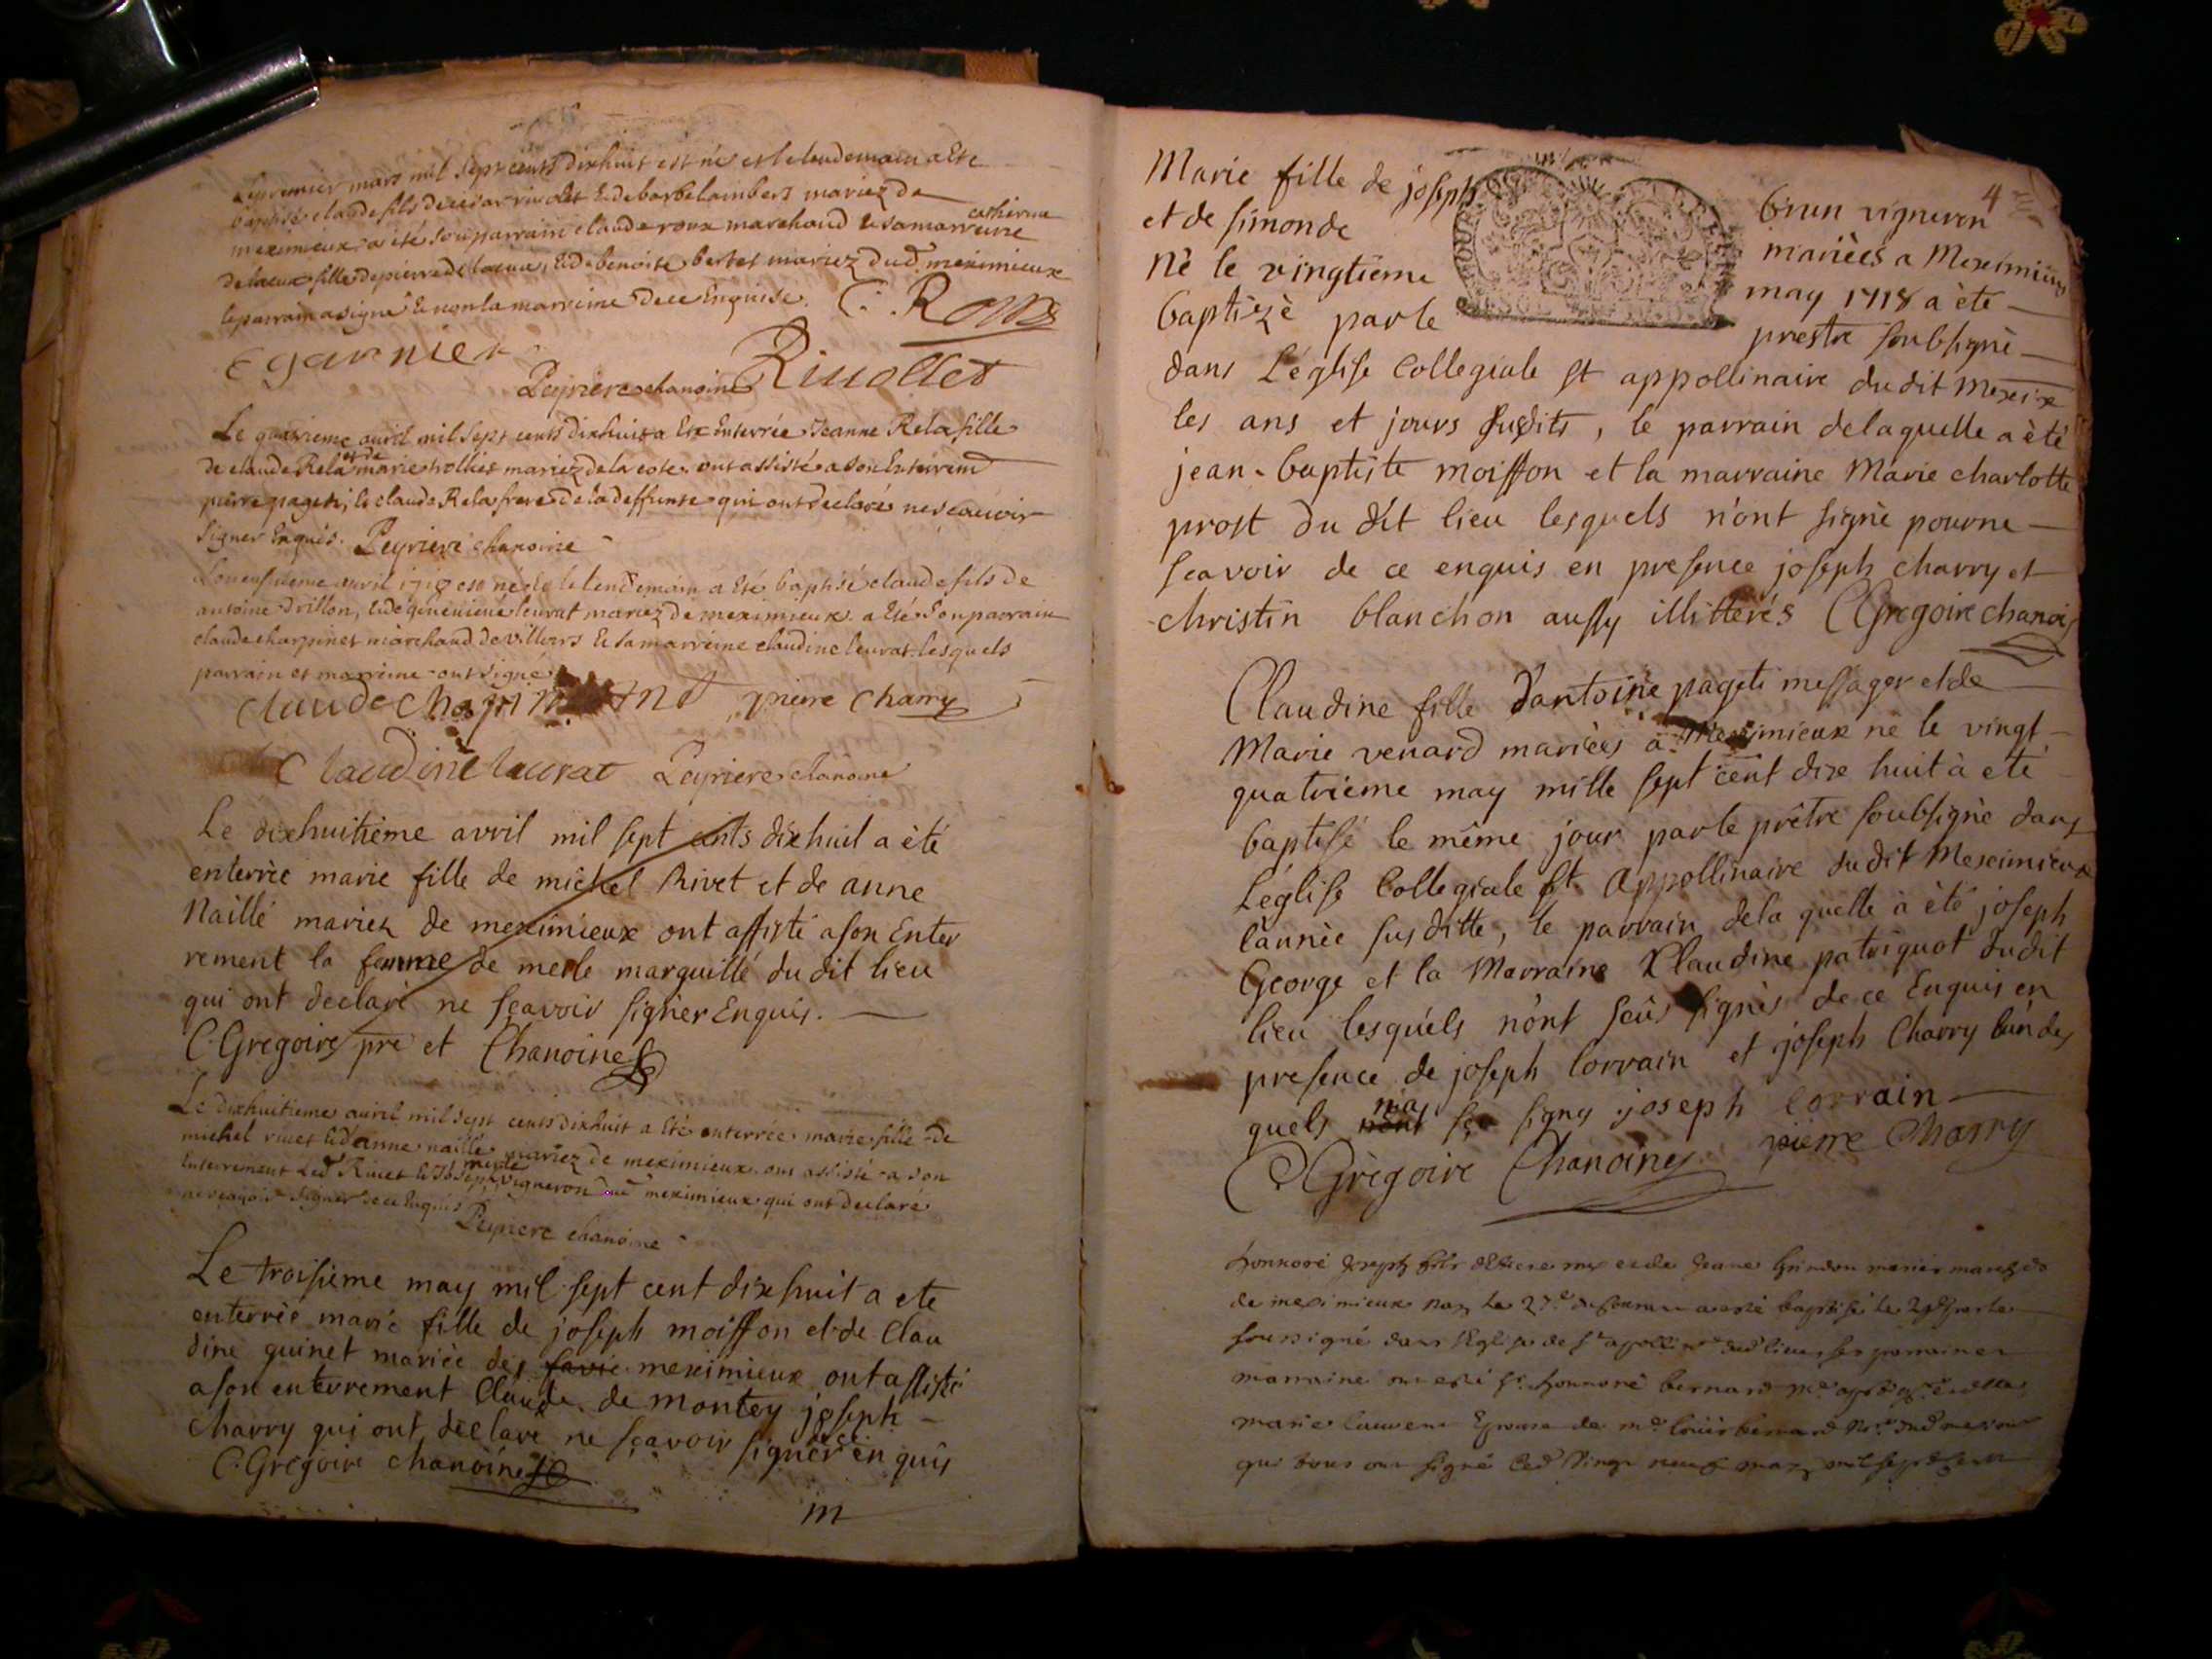 Le premier mars mil sept cents dixhuit est né et le lendemain a Eté
baptisé claude fils de cesar rivolet & de barbe lambert mariez de
meximieux a été son parrain claude roux marchand & sa marreine catherine
delacua fille de pierre delacua, & de benoite mariez dud. meximieux
le parrain a signé & non la marreine de ce Enquise. C. Roux
garnier
Peyriere chanoine Riuollet
Le quatrieme auril mil sept cents dixhuit a Eté Enterrée Jeanne Rela fille
de claude Rela et de marie trollier mariez de la cote. ont assisté a son Enterrem
pierre pageti, & claude Rela frere de la deffunte qui ont declaré ne scauoir
signer Enquis. Peyriere chanoine
Le neufuieme auril 1718 est né & le lendemain a Eté baptisé claude fils de
antoine drillon, & de geneuieue leurat mariez de meximieux. a Eté son parrain
claude charpinet marchand de villars & sa marreine claudine leurat. lesquels
parrain et marreine ont signé
claude pierre Charry
Claudine leurat Peyriere chanoine
Le dixhuitième avril mil sept cents dixhuit a èté
enterrèe marie fille de michel Rivet et de anne
Naillé mariez de meximieux ont assisté a son Enter
rement la femme de merle marguillé du dit lieu
qui ont declarè ne sçavoir signer Enquis.
C. Gregoire pre et Chanoine
Le dixhuitieme auril mil sept cents dixhuit a Eté enterrée marie fille de
michel riuet & d'anne naillé mariez de meximieux. ont assisté a son
Enterrement led Riuet & Joseph merle vigneron dud meximieux qui ont declaré
ne scauoir signer de ce Enquis Peyriere chanoine
Le troisième may mil sept cent dixhuit a ete
enterrèe marie fille de joseph moisson et de Clau
dine guinet mariée de meximieux ont assisté
a son enterrement Claude de montey joseph
charry qui ont declaré ne sçavoir signer en quis
C. Gregoire chanoine
m
4
Marie fille de joseph brun vigneron
et de simonde marièes a Meximieux
Nè le vingtième may 1718 a ète
baptizè par le prestre soubsignè
dans L'église Collegiale st appollinaire du dit Mexix
les ans et jours susdits, le parrain de laquelle a èté
jean-baptiste moisson et la marraine Marie charlotte
prost du dit lieu lesquels n'ont signè pour ne
scavoir de ce enquis en presence joseph charry et
christin blanchon aussy illitterés C Gregoire chanoi
Claudine fille d'antoine pageti messager et de
Marie venard mariées a Meximieux nè le vingt
quatrième may mille sept cent dix huit à ete
baptisé le même jour par le prêtre soubsignè dans
L'église Collegiale St Appollinaire du dit Meximieux
l'année susditte, le parrain de la quelle à été joseph
George et la Marraine Claudine patriquot du dit
lieu lesquels n'ont sçûs signès de ce Enquis en
presence de joseph lorrain et joseph Charry l'un des
quels n'a sçu signy joseph lorrain
C Grègoire Chanoine pierre Charry
honnoré joseph fils et de Jeane mariés march
de meximieux nay le 27e du courant a esté baptisé le par le
soussigné dans l'Eglise de St apollinre dud lieu, ses parrain et
marraine ont esté Sr honnoré bernard
marie Epouse de me louis bernard
qui tous ont signé led vingt neuf may mil sept cent